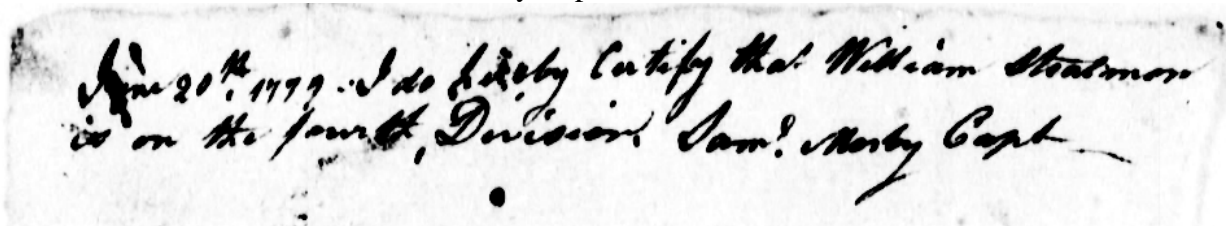 June 20th. 1779. I do hereby Certify that William
is on the fourth, Division. Saml. Capt